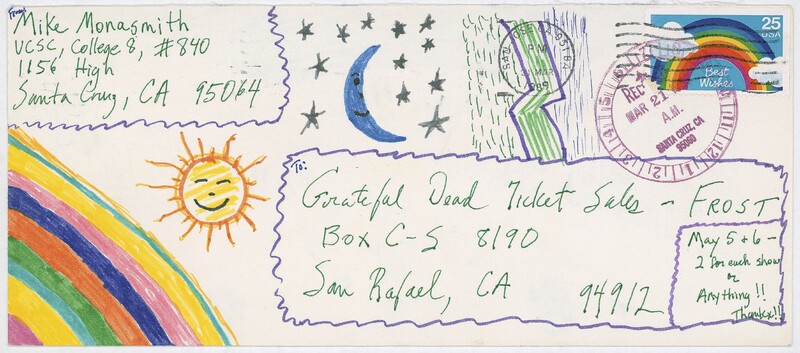 From:
Mike Monasmith
UCSC, College 8, #840
1156 High
Santa Cruz, CA 95064
SAN JOSE CA 95184
PM
MAR
1989
25
USA
Best
Wishes
REC'
MAR 21
A.M.
SANTA CRUZ, CA
95060
To:
Grateful Dead Ticket Sales - FROST
Box C-S 8190
San Rafael, CA 94912
May 5 + 6 -
2 for each show
or
Anything!!
Thankx!!